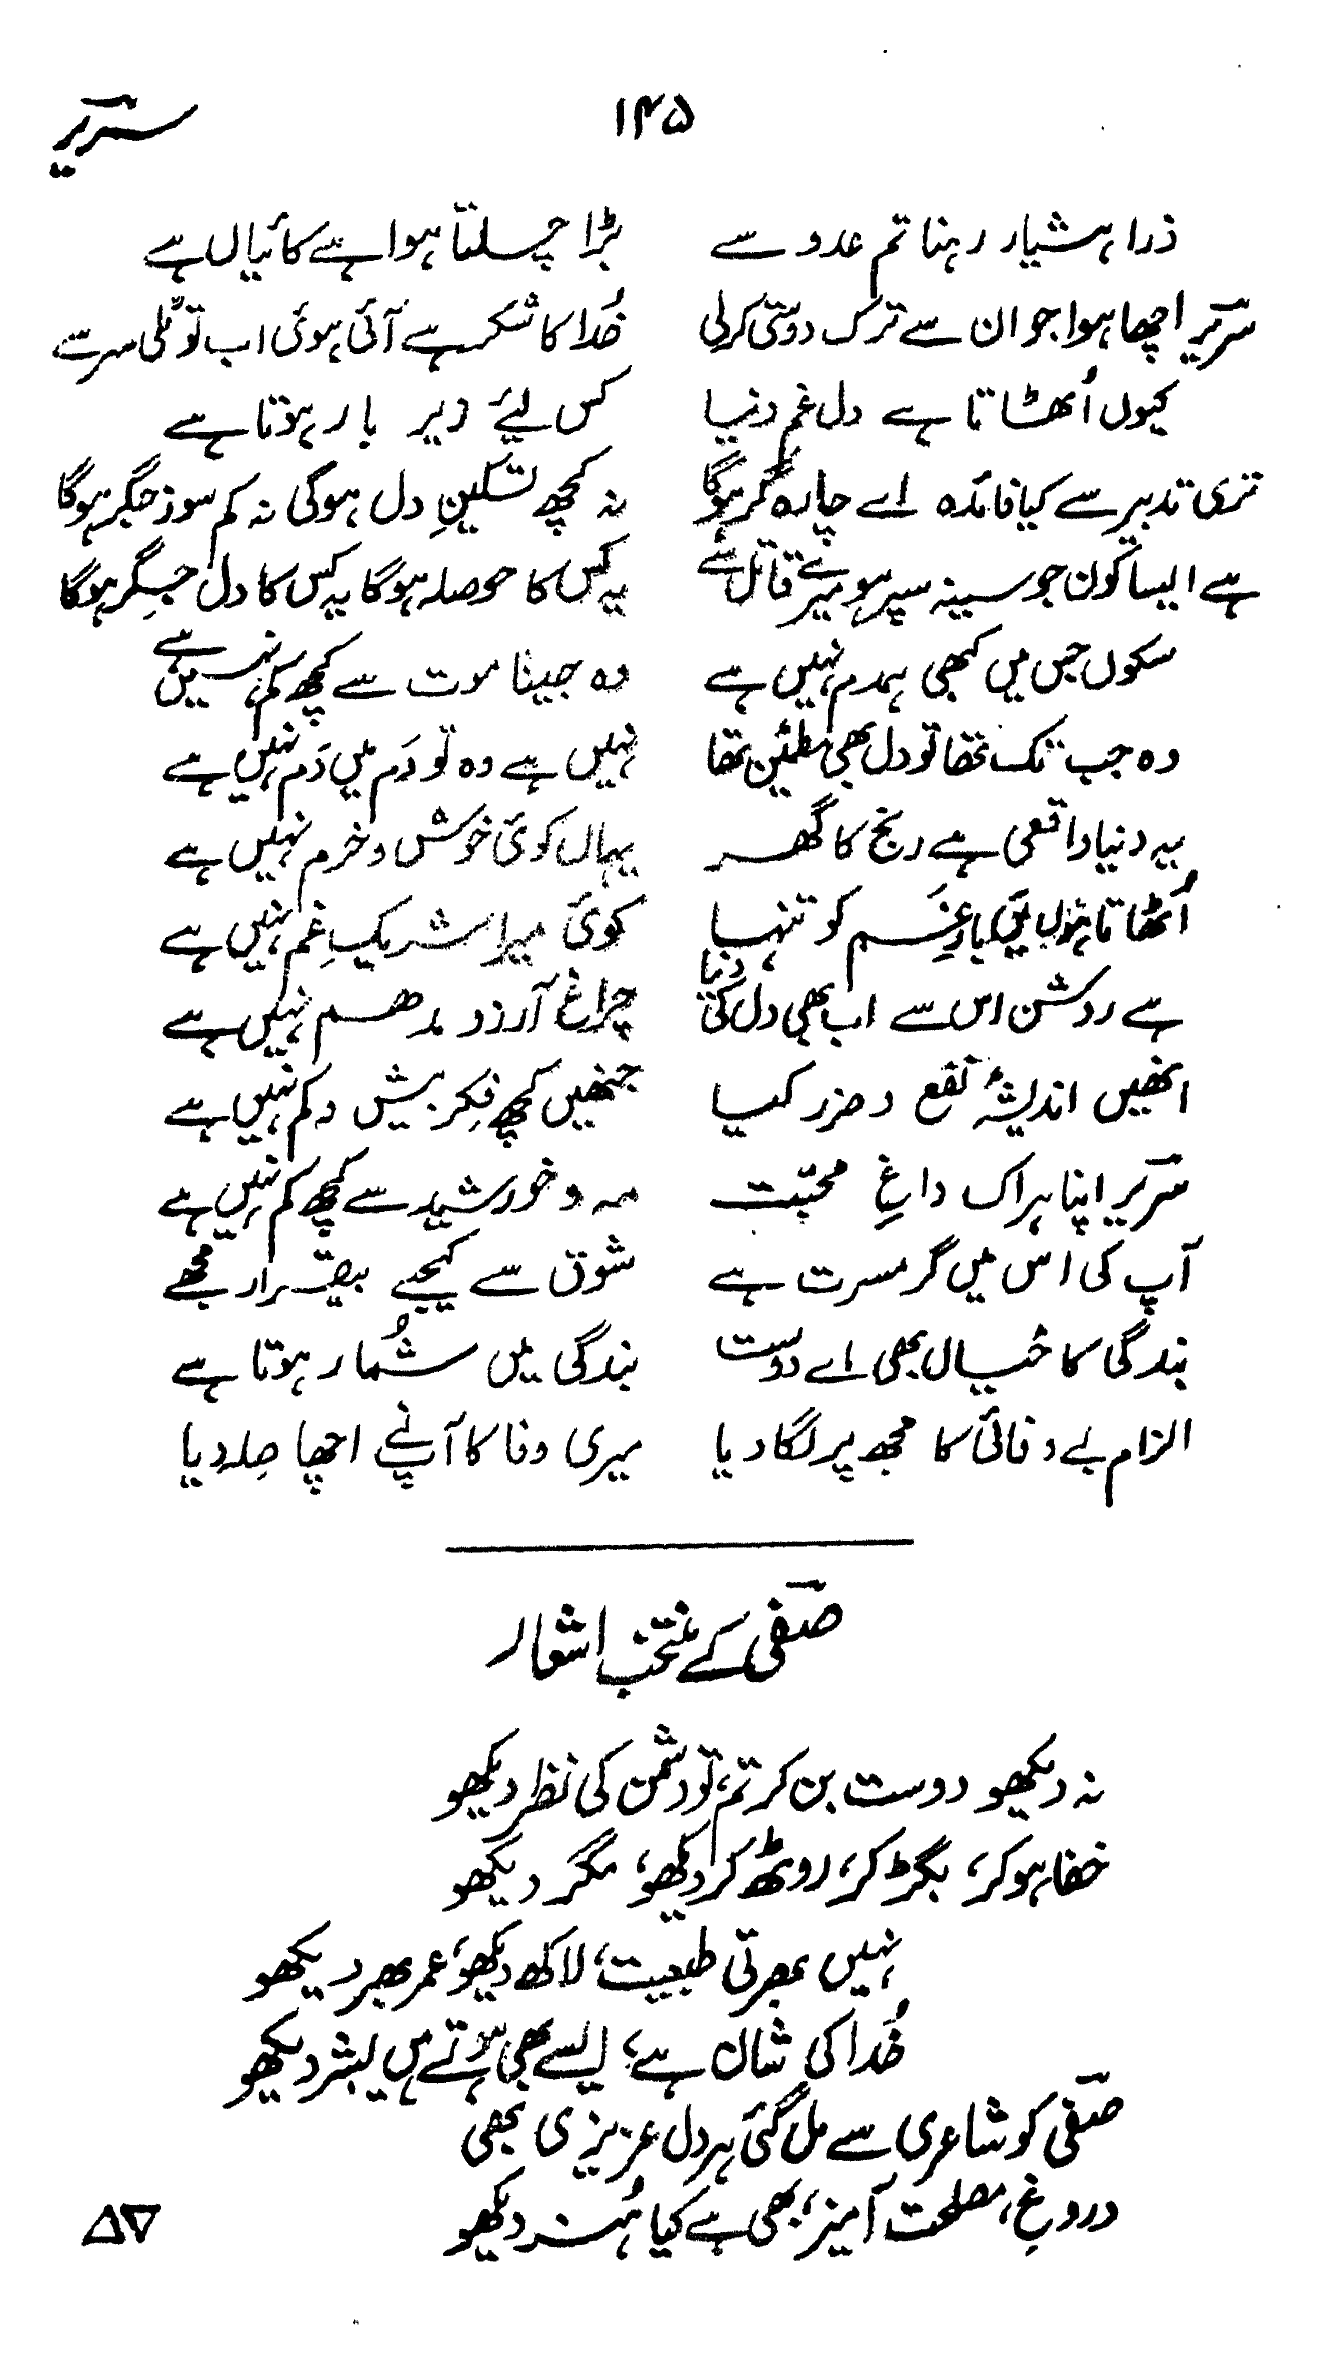 ۱۴۵ سریر
ذرا ہشیار رہنا تم عدو سے بڑا چلتا ہوا ہے کائیاں ہے
سریر اچھا ہوا جو ان سے ترک دوستی کرلی خُدا کا شکر ہے آئی ہوئی اب تو ٹلی سر سے
کیوں اُٹھاتا ہے دل غم دنیا کس لیئے زیر بار ہوتا ہے
تری تدبیر سے کیا فائدہ اے چارہ گر ہوگا نہ کچھ تسکینِ دل ہوگی نہ کم سوز جگر ہوگا
ہے ایسا کون جو سینہ سپر ہو میرے قاتل سے یہ کس کا حوصلہ ہوگا یہ کس کا دل جگر ہوگا
سکوں جس میں کبھی ہمدم نہیں ہے وہ جینا موت سے کچھ کم نہیں ہے
وہ جب تک تھا تو دل بھی مطمئن تھا نہیں ہے وہ تو دَم میں دَم نہیں ہے
یہ دنیا واقعی ہے رنج کا گھر یہاں کوئی خوش و خرم نہیں ہے
اُٹھاتا ہوں میں بارِ غم کو تنہا کوئی میرا شریکِ غم نہیں ہے
ہے روشن اس سے اب بھی دل کی دنیا چراغ آرزو مدھم نہیں ہے
انھیں اندیشۂ نفع و ضرر کیا جنھیں کچھ فکر بیش و کم نہیں ہے
سریر اپنا ہر اک داغِ محبّت مہ و خورشید سے کچھ کم نہیں ہے
آپ کی اس میں گر مسرت ہے شوق سے کیجیے بیقرار مجھے
بندگی کا خیال بھی اے دوست بندگی میں شُمار ہوتا ہے
الزام بے وفائی کا مجھ پر لگا دیا میری وفا کا آپنے اچھا صِلہ دیا
صفی کے منتخب اشعار
نہ دیکھو دوست بن کر تم، تو دشمن کی نظر دیکھو
خفا ہو کر، بگڑ کر، روٹھ کر دیکھو، مگر دیکھو
نہیں بھرتی طبیعت، لاکھ دیکھو، عمر بھر دیکھو
خُدا کی شان ہے، ایسے بھی ہوتے ہیں بشر دیکھو
صفی کو شاعری سے مل گئی ہر دل عزیزی بھی
دروغِ، مصلحت آمیز، بھی ہے کیا ہُنر دیکھو
۵۷